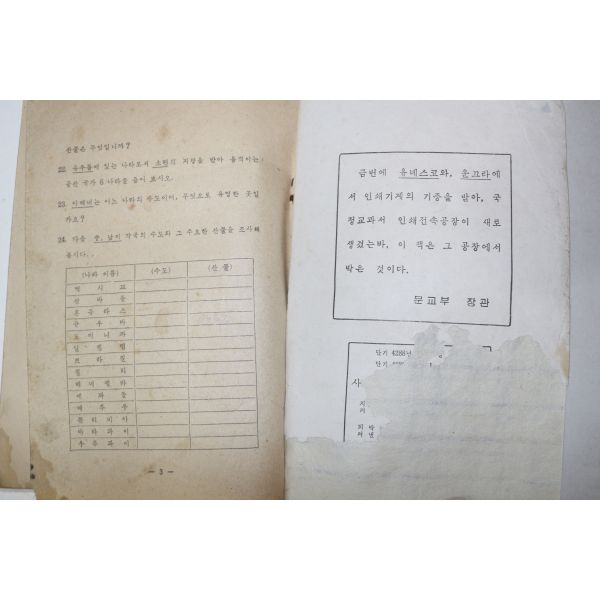 산물은 무엇입니까?
22. 유우롭에 있는 나라로서 소련의 지장을 받아 움직이는
공산 국가 6 나라를 들어 보시오.
23. 어느 나라의 수도이며, 무엇으로 유명한 곳입
까요?
24. 다음 중, 남미 각국의 수도와 그 주요한 산물을 조사해
봅시다.
(나라 이름) (수도) (산 물)
멕 시 코
온 두 라 스
큐 우 바
도 미 니 카
브 라 질
칠 리
에 콰 돌
볼 리 비 아
파 라 과 이
우 루 과 이
— 3 —
금번에 유네스코와, 운끄라에
서 인쇄기계의 기증을 받아, 국
정교과서 인쇄전속공장이 새로
생겼는바, 이 책은 그 공장에서
박은 것이다.
문교부 장관
단기 4288년
단기
사
지